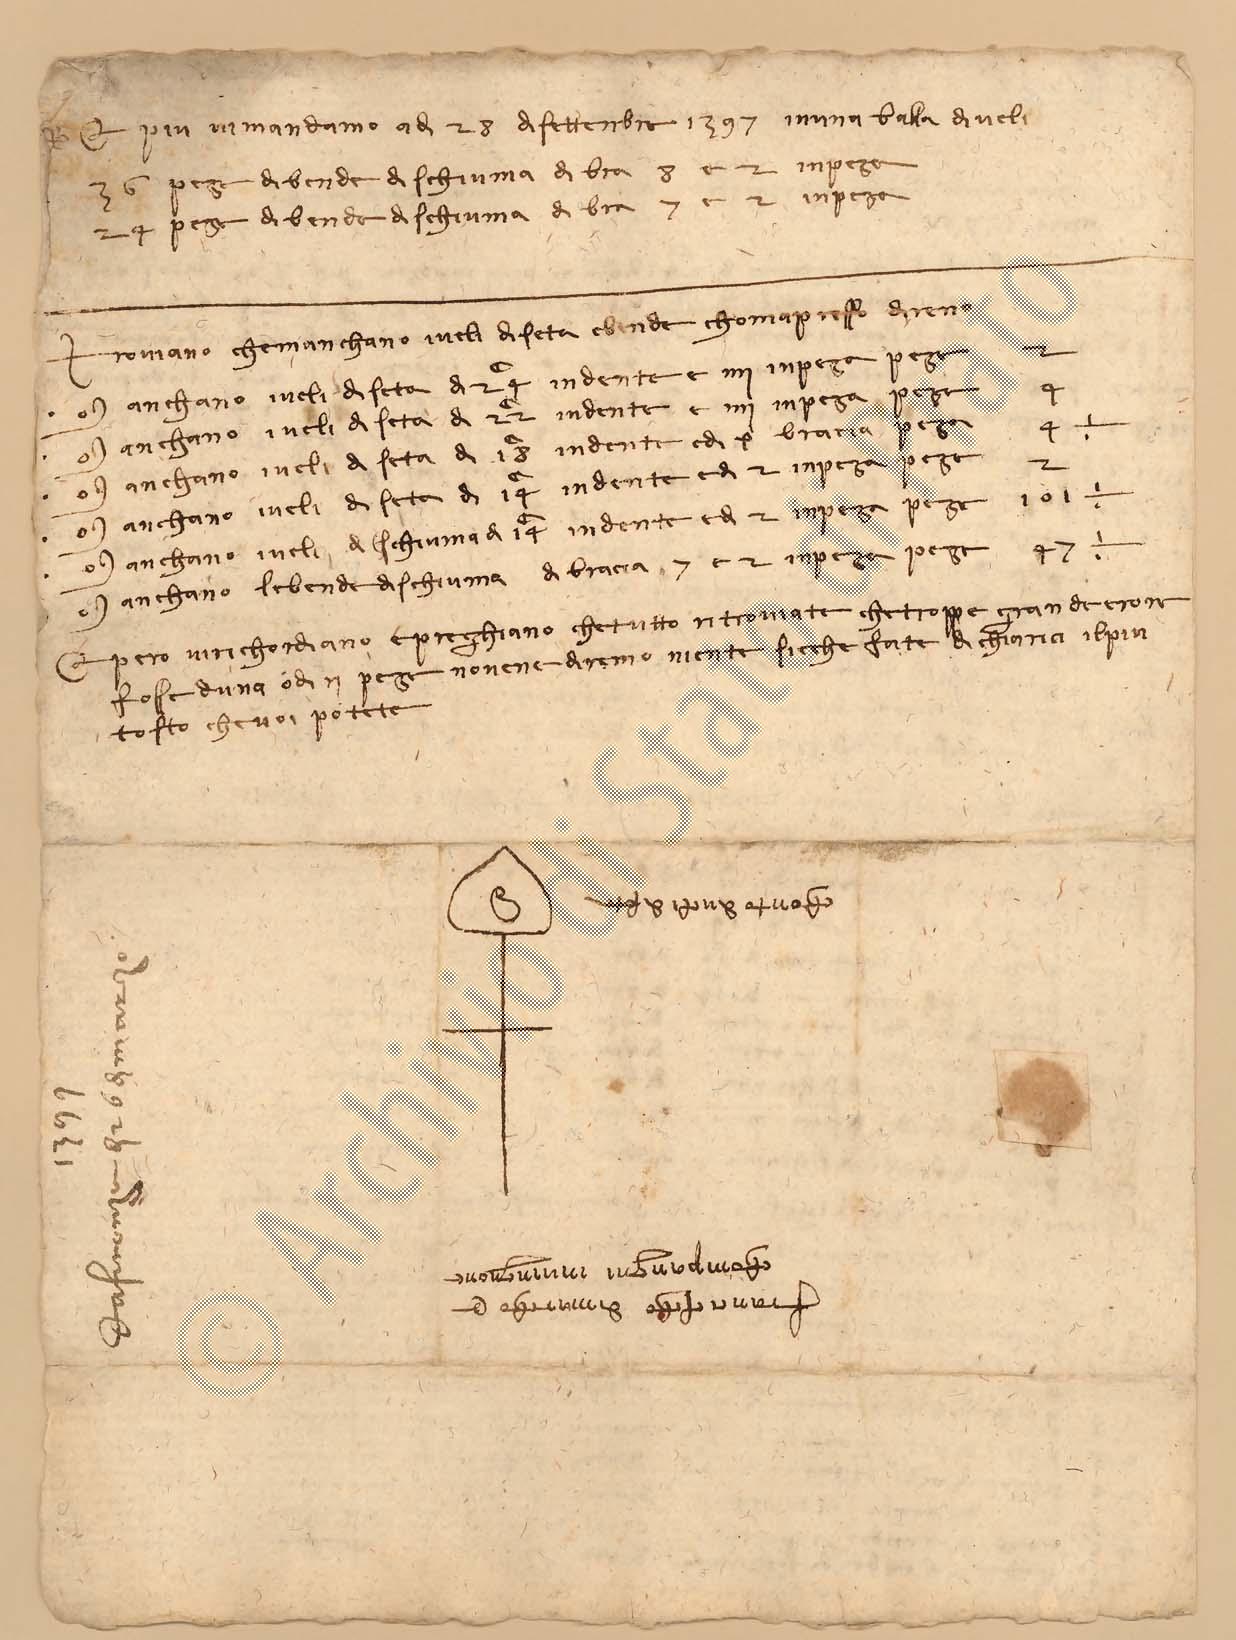 E piu vi mandamo a di 28 di settenbre 1397 in una balla di veli
36 peze di bende di schiuma di bra 8 e 2 in peza
24 peze di bende di schiuma di bra 7 e 2 in peza
troviano che manchano i veli di seta e bende chom apresso direno
anchano i veli di seta di 24 in dente e IIII in peza peze 2
anchano i veli di seta di 22 in dente e IIII in peza peze 4
anchano i veli di seta di 18 in dente e di bracia peza 4 ½
anchano i veli di seta di 14 in dente e di 2 in peza peze 2
anchano i veli di schiuma di 14 in dente e di 2 in peza peze 101 ½
anchano le bende di schiuma di bracia 7 e 2 in peza peze 47 ½
E pero vi richordiano e preghiano che tutto ritroviate che troppe grande erore
fosse d una o di II peze non vene diremo niente sicche fate di chiarici il piu
tosto che voi potete
1399
Francescho di Marcho e
chonpangni in
© Archivio di Stato di Prato